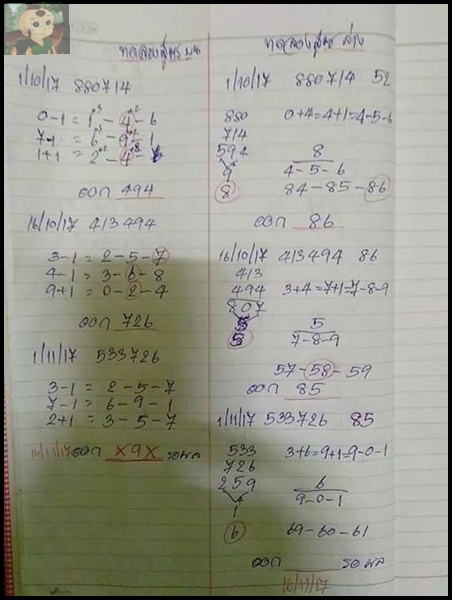 ทดลองสูตร บน
1/10/17 880714
0-1 = 1-4-6
7-1 = 6-9-1
1+1 = 2-4-
ออก 494
16/10/17 413494
3-1 = 2-5-7
4-1 = 3-6-8
9+1 = 0-2-4
ออก 726
1/11/17 533726
3-1 = 2-5-7
7-1 = 6-9-1
2+1 = 3-5-7
16/11/17 ออก X9X รอผล
ทดลองสูตร ล่าง
1/10/17 880714 52
880 0+4=4+1=4-5-6
714
594 8
9 4-5-6
8 84-85-86
ออก 86
16/10/17 413494 86
413
494 3+4=7+1=7-8-9
807
5 5
7-8-9
57-58-59
ออก 85
1/11/17 533726 85
533 3+6=9+1=9-0-1
726
259 6
1 9-0-1
6 69-60-61
ออก รอผล
16/11/17